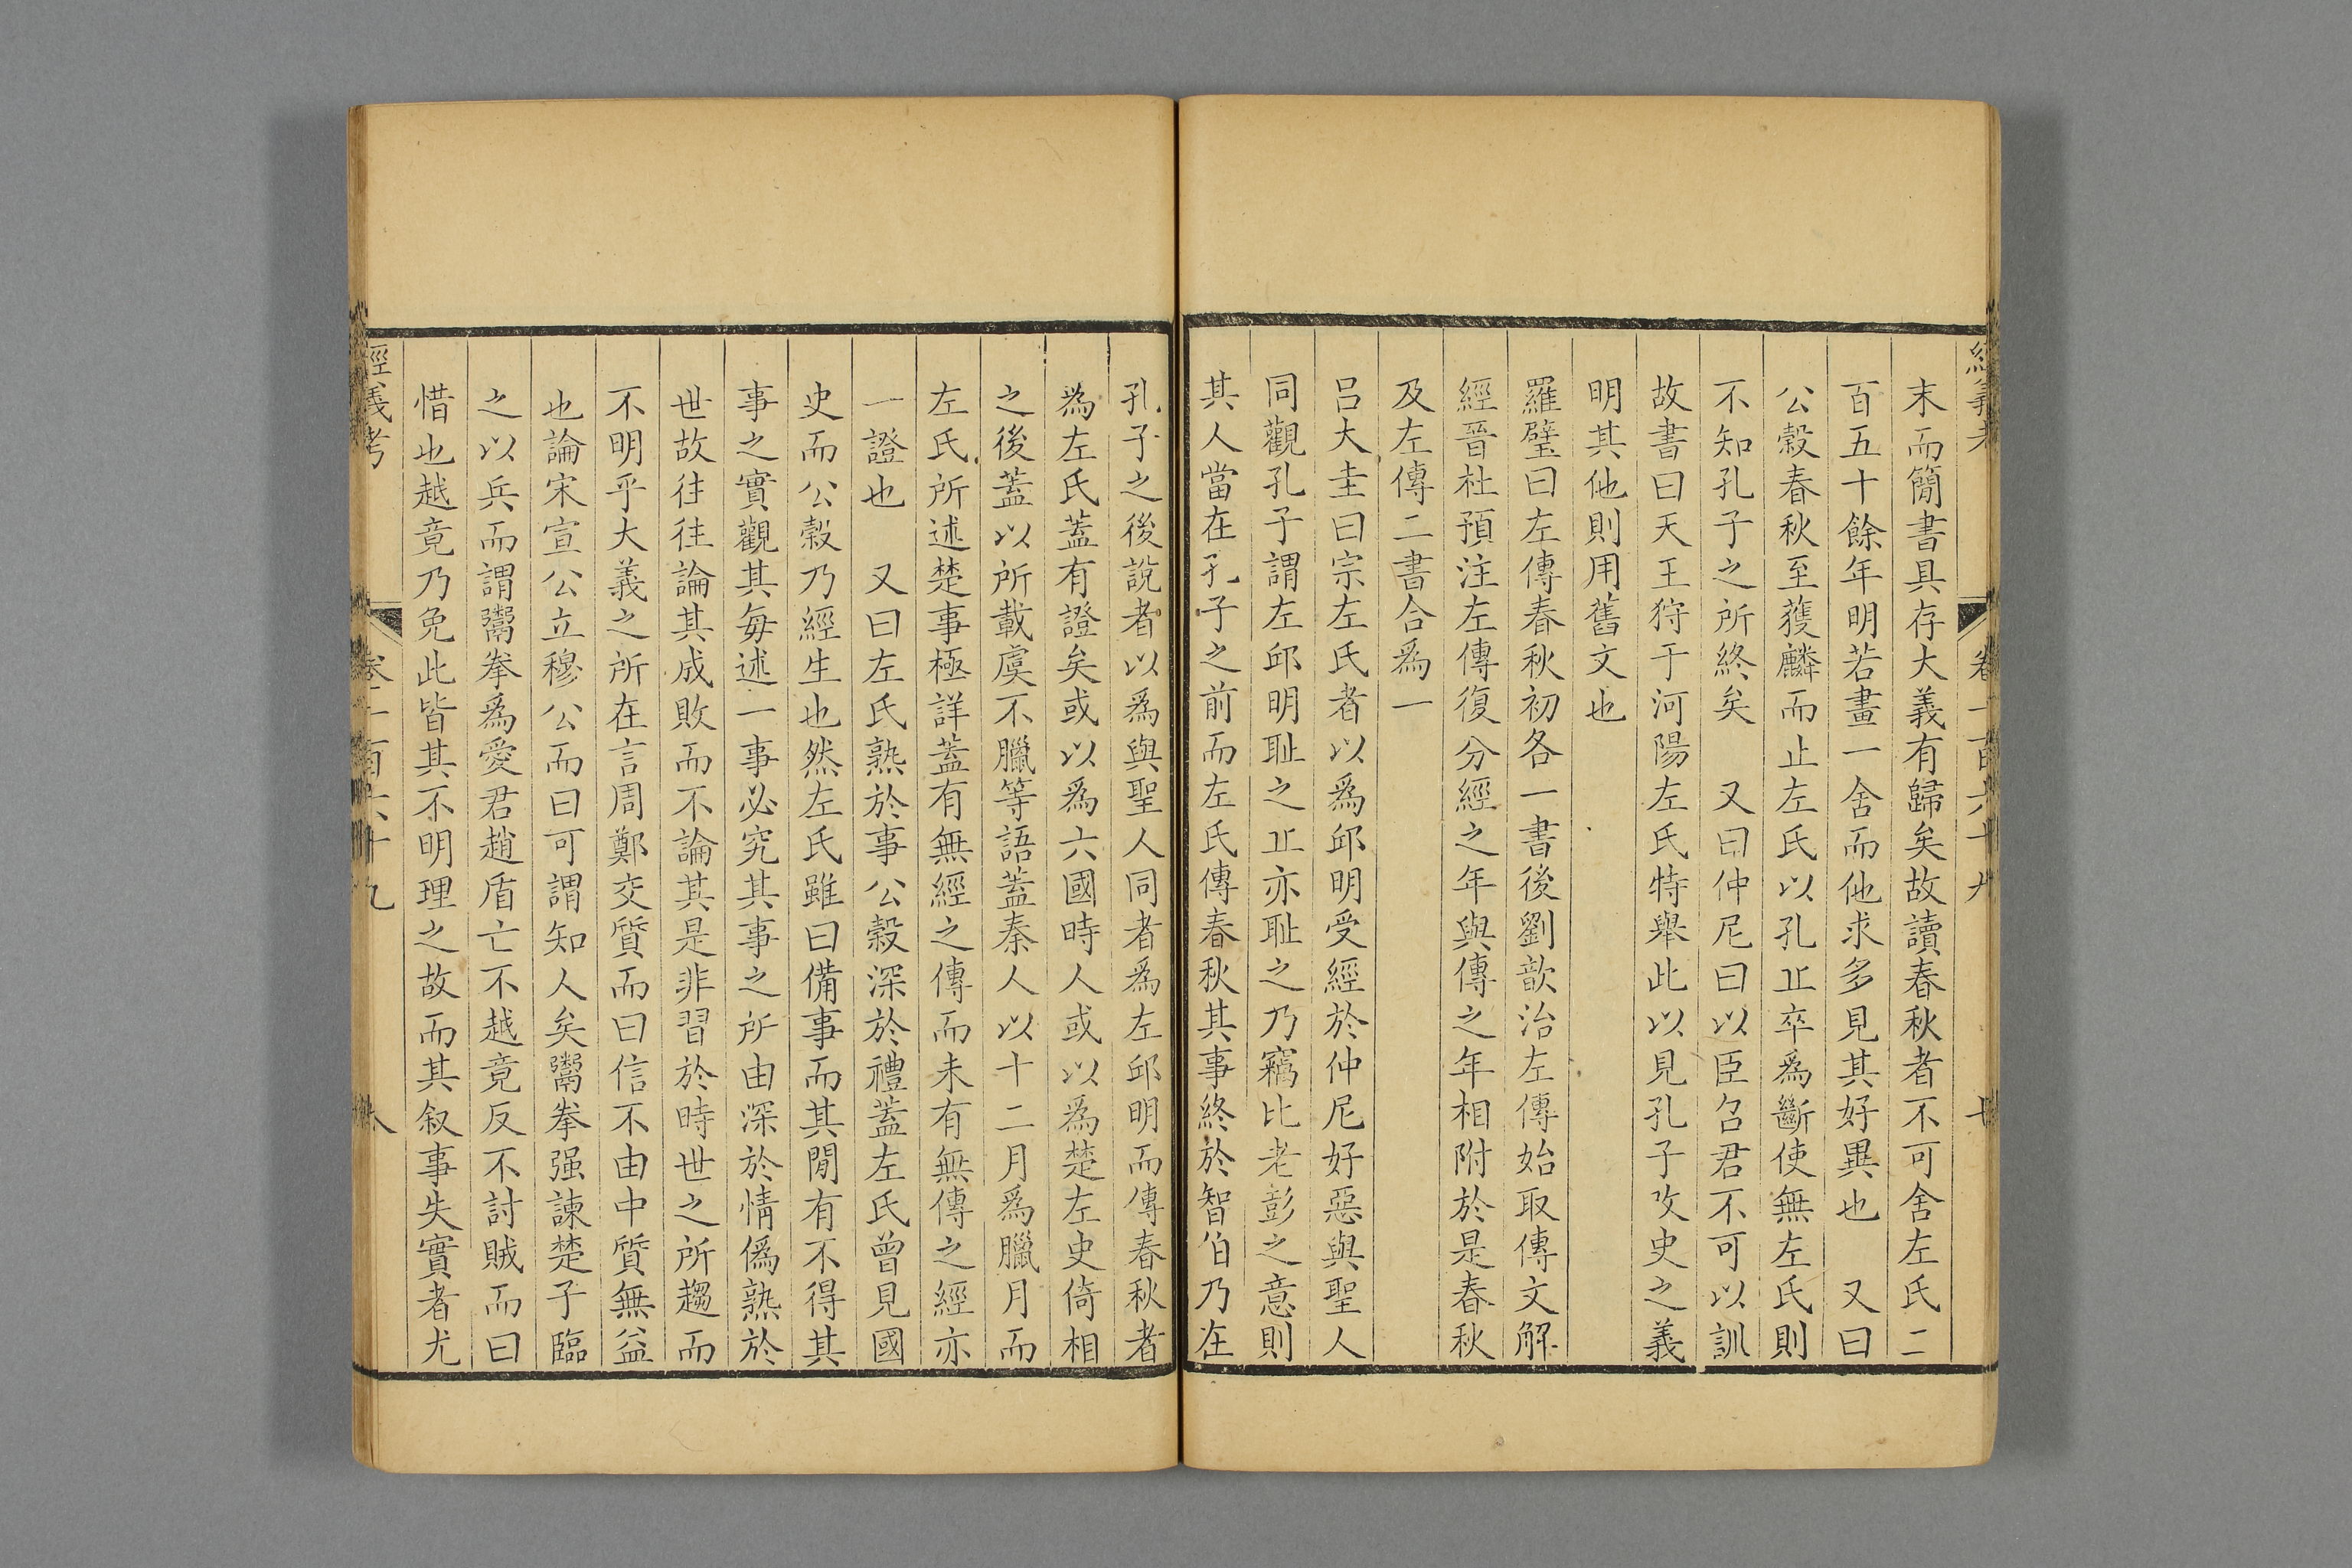 經義考 卷一百六十九
末而簡書具存大義有歸矣故讀春秋者不可舍左氏二
百五十餘年明若畫一舍而他求多見其好異也 又曰
公穀春秋至獲麟而止左氏以孔丘卒爲斷使無左氏則
不知孔子之所終矣 又曰仲尼曰以臣召君不可以訓
故書曰天王狩于河陽左氏特舉此以見孔子攷史之義
明其他則用舊文也
羅璧曰左傳春秋初各一書後劉歆治左傳始取傳文解
經晉杜預注左傳復分經之年與傳之年相附於是春秋
及左傳二書合爲一
呂大圭曰宗左氏者以爲邱明受經於仲尼好惡與聖人
同觀孔子謂左邱明恥之丘亦恥之乃竊比老彭之意則
其人當在孔子之前而左氏傳春秋其事終於智伯乃在
孔子之後說者以爲與聖人同者爲左邱明而傳春秋者
爲左氏蓋有證矣或以爲六國時人或以爲楚左史倚相
之後蓋以所載虞不臘等語蓋秦人以十二月爲臘月而
左氏所述楚事極詳蓋有無經之傳而未有無傳之經亦
一證也 又曰左氏熟於事公穀深於禮蓋左氏曾見國
史而公穀乃經生也然左氏雖曰備事而其閒有不得其
事之實觀其每述一事必究其事之所由深於情僞熟於
世故往往論其成敗而不論其是非習於時世之所趨而
不明乎大義之所在言周鄭交質而曰信不由中質無益
也論宋宣公立穆公而曰可謂知人矣鬻拳强諫楚子臨
之以兵而謂鬻拳爲愛君趙盾亡不越竟反不討賊而曰
惜也越竟乃免此皆其不明理之故而其叙事失實者尤
經義考 卷一百六十九 八